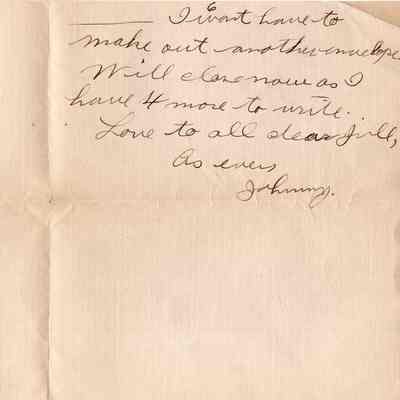 I wont have to
make out another envelope
Will close now as I
have 4 more to write.
Love to all dear Jill,
As ever,
Johnny.